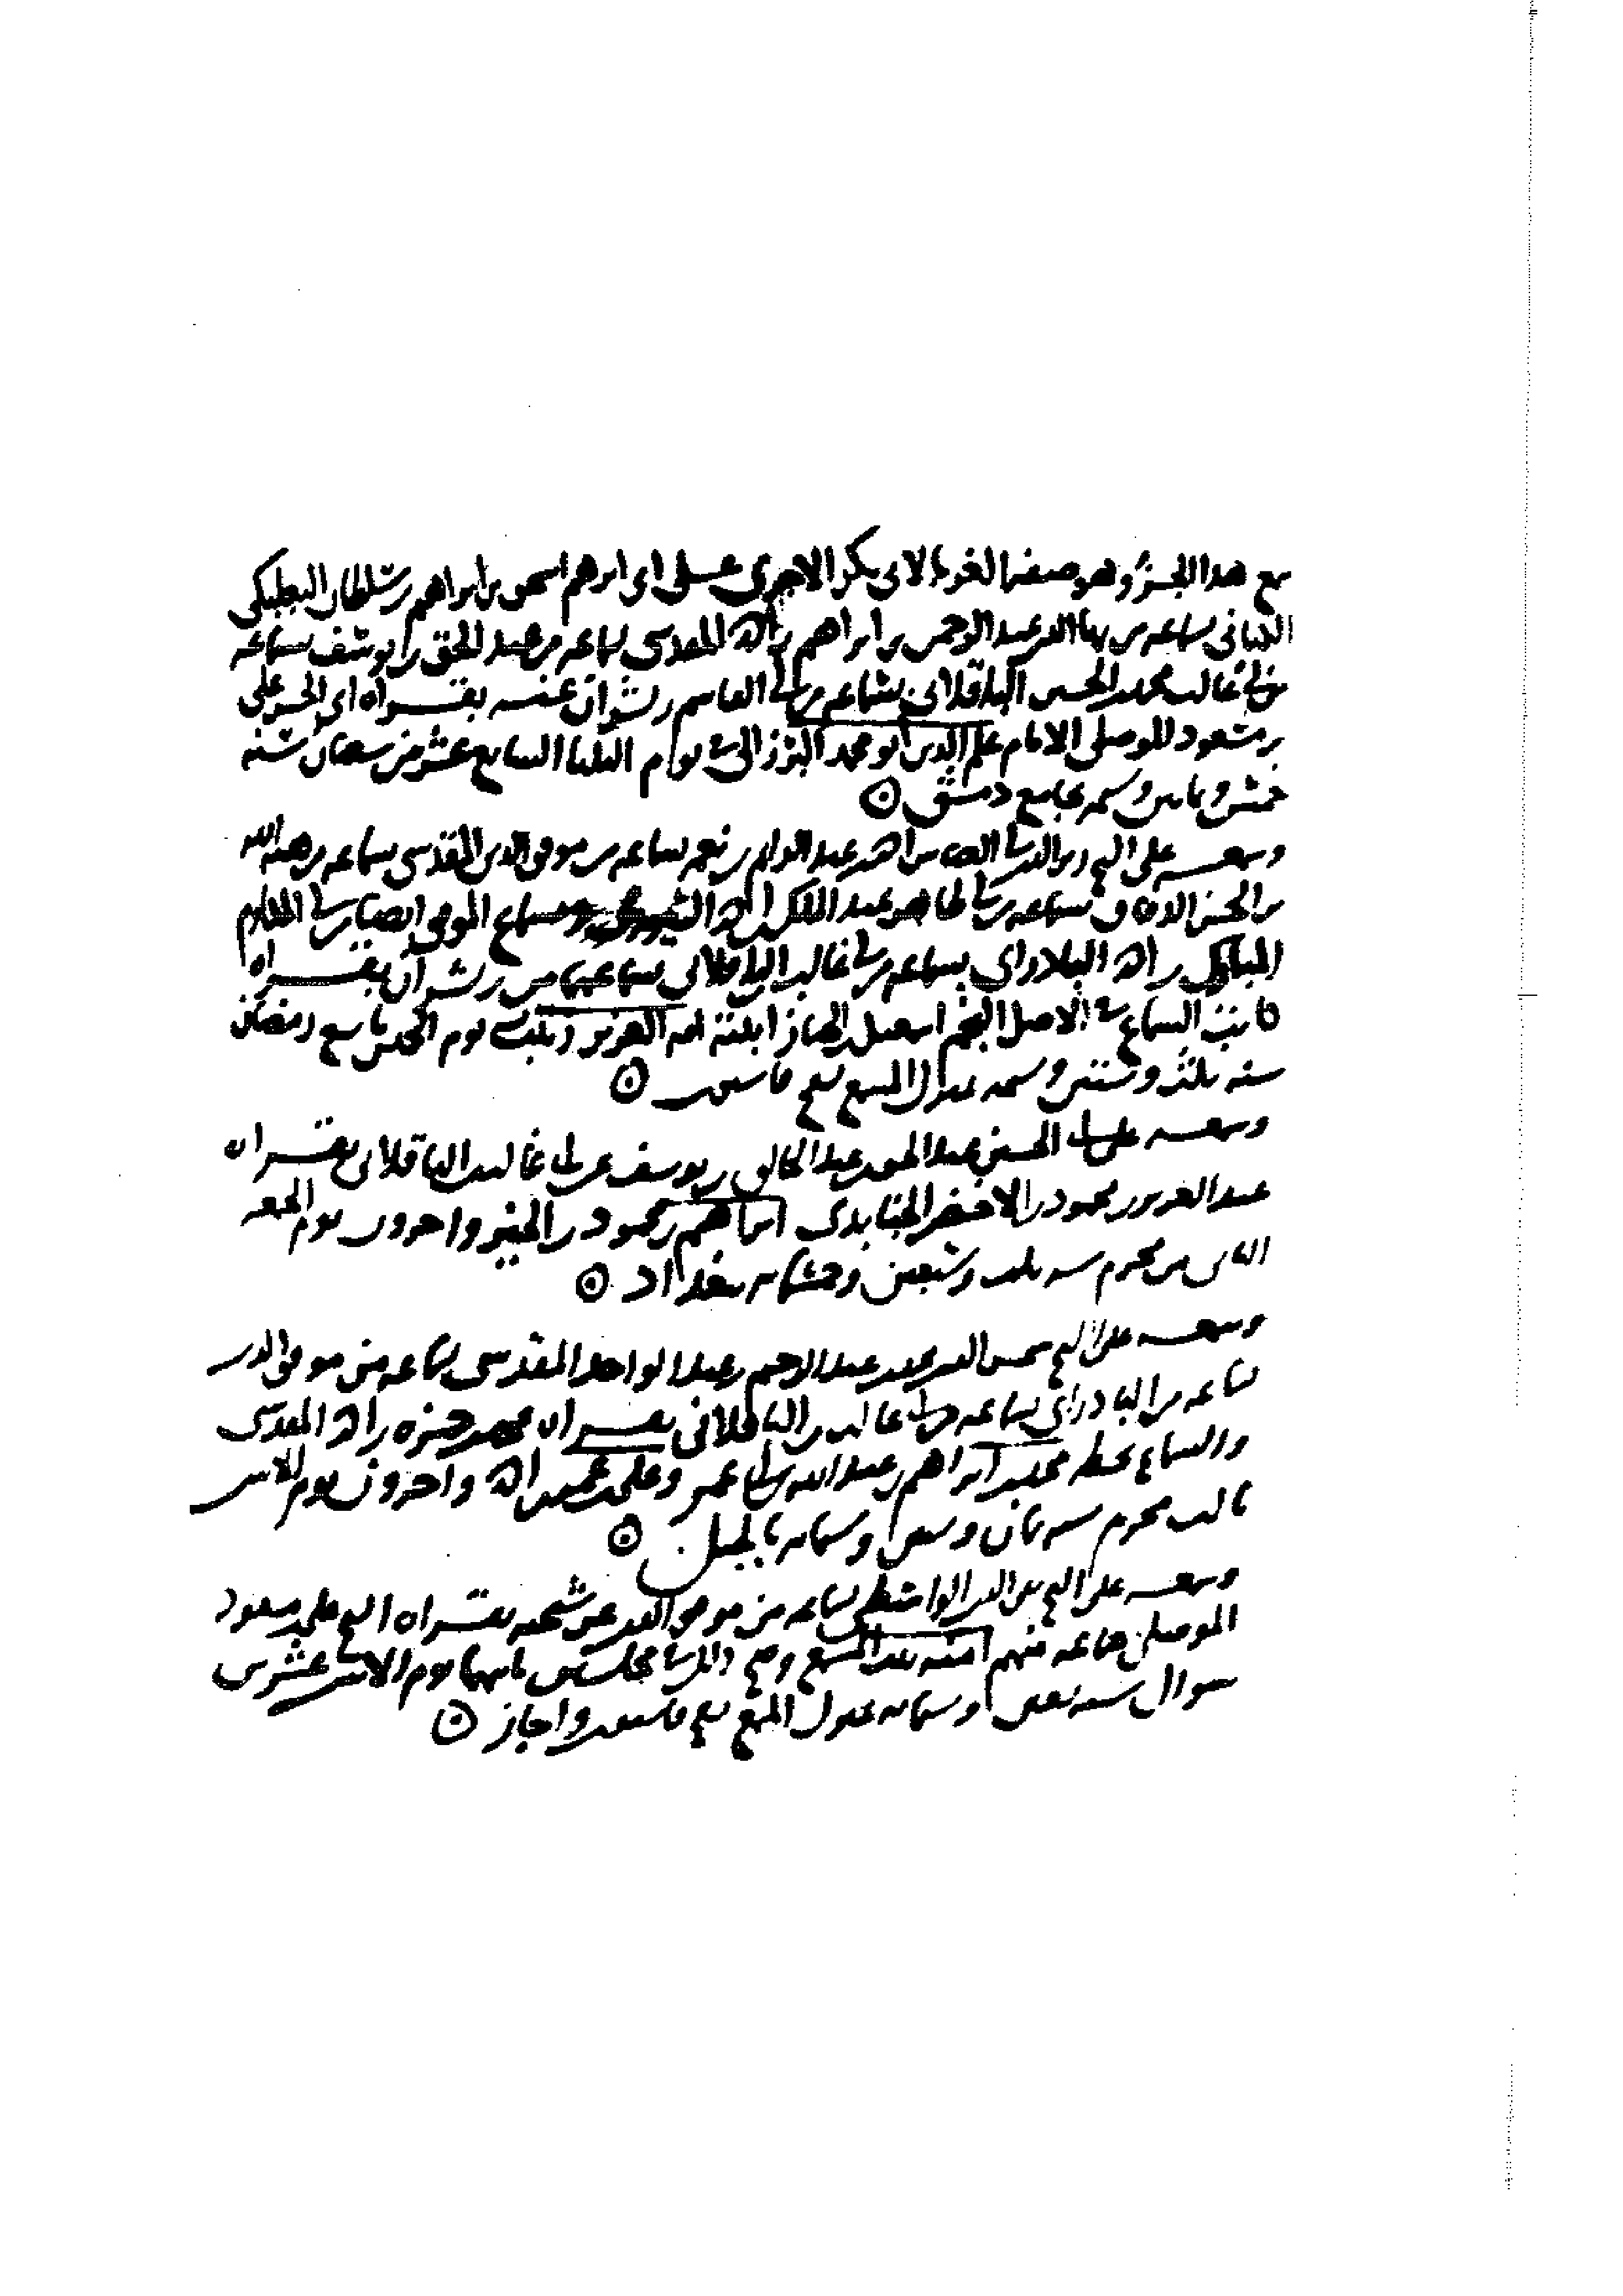 سمع هذا الجزء وهو صفة الغرباء لابي بكر الاجري على ابي ابرهيم اسحق بن ابراهيم بن سلطان البعلبكي
الكتاني بسماعه من بها الدين عبد الرحمن بن ابراهيم بن احمد المقدسي بسماعه من عبد الحق بن يوسف بسماعه
من ابي غالب محمد بن الحسن الباقلاني بسماعه من ابي القاسم بن بشران عنه بقراه ابي الحسن علي
بن مسعود الموصلي الامام علم الدين ابو محمد البرزالي في يوم الثلثا السابع عشر من شعبان سنة
خمس وثمانين وستمئة بجامع دمشق
وسمعه على الشيخ احمد عبد الدايم بن نعمة بسماعه من موفق الدين المقدسي بسماعه من هبة الله
بن الحسن الدقاق بسماعه من ابي طاهر عبد الملك بن احمد وسماع الموفق ايضا من ابي المكارم
المبارك بن احمد البادراي بسماعه من ابي غالب الباقلاني بسماعهما من بشران بقراه
كاتب السماع في الاصل النجم اسمعيل بن الخباز ابنته امة العزيز وثبت يوم الخميس تاسع رمضان
سنة ثلث وستين وستمئة بمنزل المسمع بسفح قاسيون
وسمعه على ابي الحسين عبد الحق بن عبد الخالق بن يوسف عن ابي غالب الباقلاني بقراة
عبد العزيز بن محمود بن الاخضر الجنابذي ابراهيم بن محمود بن الخير واخرون يوم الجمعة
الثامن من محرم سنة ثلث وسبعين وخمسمائة ببغداد
وسمعه على الشيخ شمس الدين محمد بن عبد الرحيم بن عبد الواحد المقدسي بسماعه من موفق الدين
بسماعه من البادراي بسماعه من ابي غالب بن الباقلاني بقراة محمد بن حمزة بن احمد المقدسي
والسماع بخطه محمد بن ابراهيم بن عبد الله بن ابي عمر واخرون يوم الاثنين
ثالث محرم سنة ثمان وسبعين وستمائة بالجبل
وسمعه على الشيخ تقي الدين الواسطي بسماعه من موفق الدين عن شيخه بقراة الشيخ علي بن مسعود
الموصلي جماعة منهم امنة بنت المسمع وصح ذلك في مجلسين ثانيهما يوم الاثنين عشرين
شوال سنة تسعين وستمائة بمنزل المسمع بسفح قاسيون واجاز